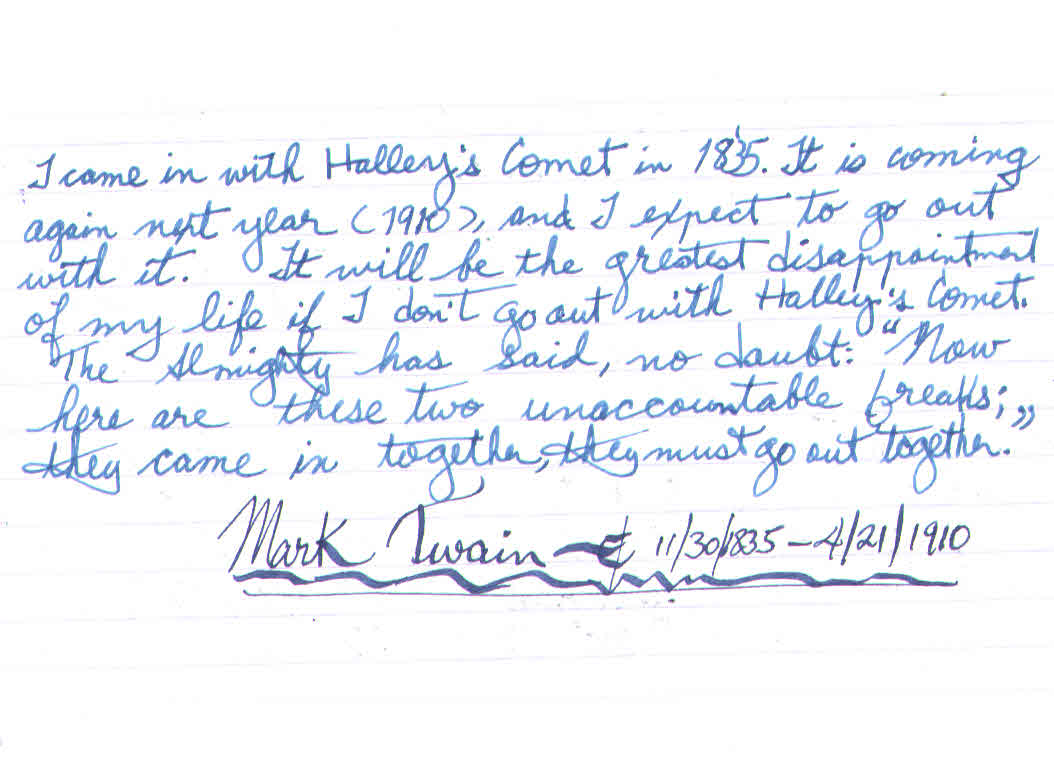 I came in with Halley's Comet in 1835. It is coming
again next year (1910), and I expect to go out
with it. It will be the greatest disappointment
of my life if I don't go out with Halley's Comet.
The Almighty has said, no doubt: "Now
here are these two unaccountable freaks;
they came in together, they must go out together."
Mark Twain 11/30/1835 – 4/21/1910